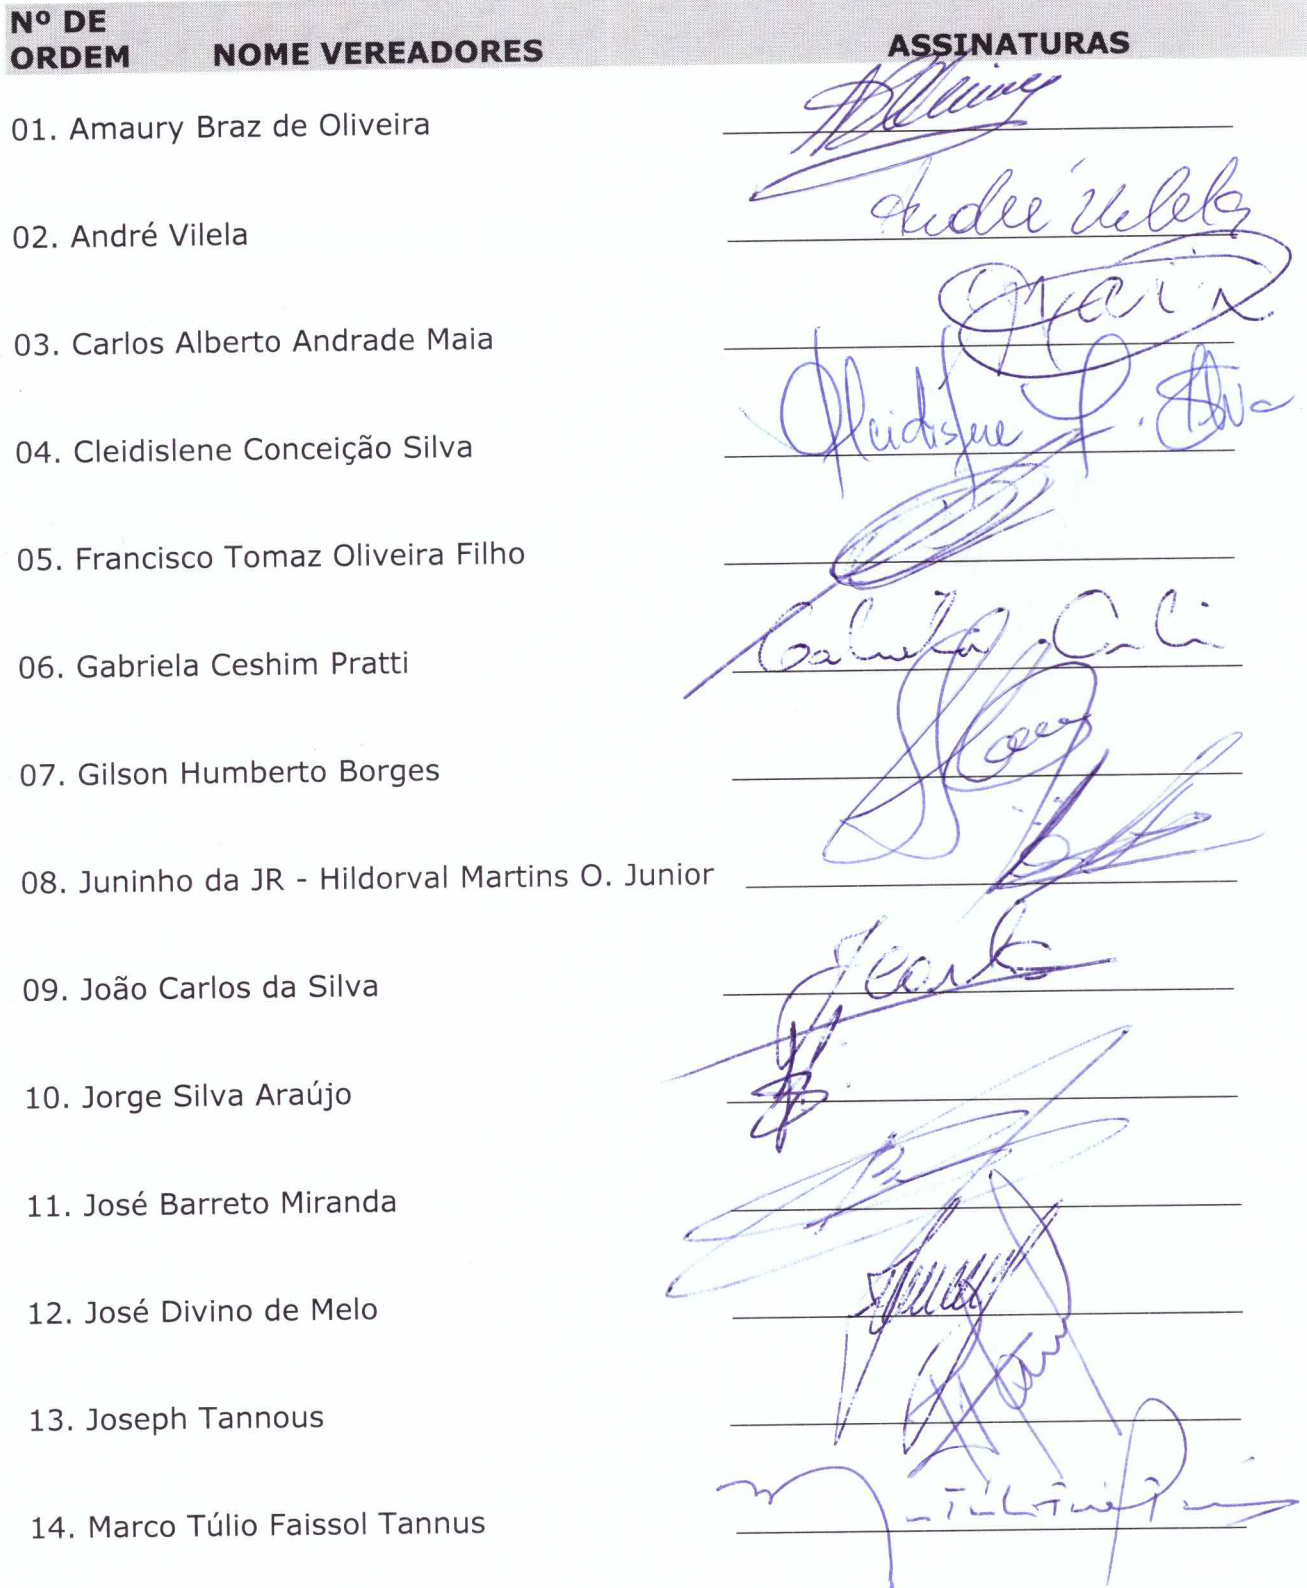 Nº DE
ORDEM NOME VEREADORES ASSINATURAS
01. Amaury Braz de Oliveira
02. André Vilela André Vilela
03. Carlos Alberto Andrade Maia Maia
04. Cleidislene Conceição Silva Cleidislene C. Silva
05. Francisco Tomaz Oliveira Filho
06. Gabriela Ceshim Pratti Gabriela
07. Gilson Humberto Borges
08. Juninho da JR - Hildorval Martins O. Junior
09. João Carlos da Silva
10. Jorge Silva Araújo
11. José Barreto Miranda
12. José Divino de Melo
13. Joseph Tannous
14. Marco Túlio Faissol Tannus